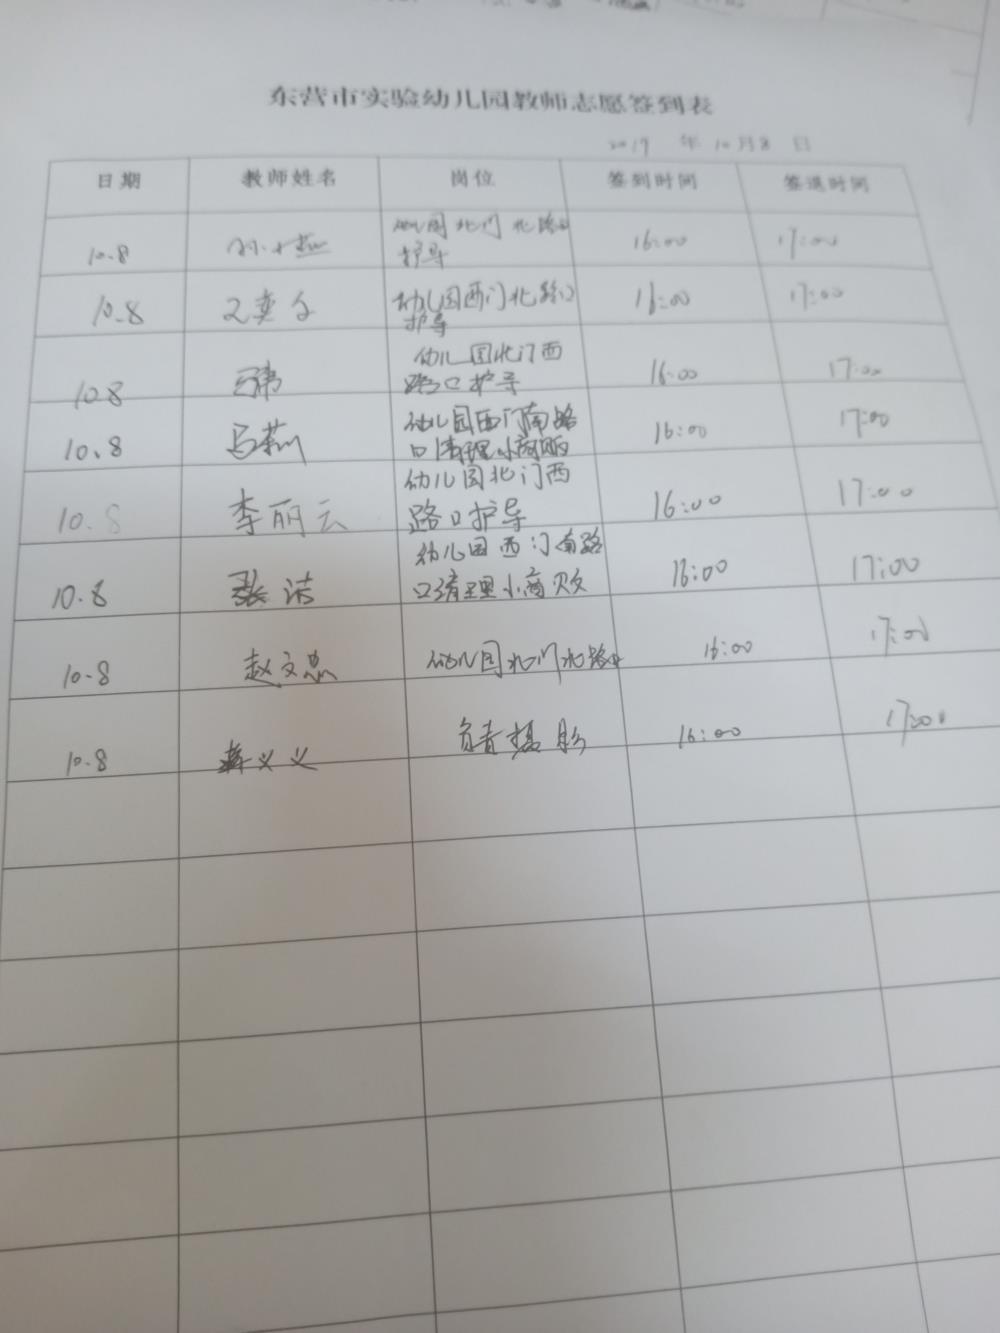 东营市实验幼儿园教师志愿签到表
2019 年 10月8 日
日期 教师姓名 岗位 签到时间 签退时间
10.8 幼儿园北门北路口 16:00 17:00
护导
10.8 幼儿园西门北路口 16:00 17:00
护导
10.8 幼儿园北门西 16:00 17:00
路口护导
10.8 马燕 幼儿园西门南路 16:00 17:00
口清理小商贩
10.8 李丽云 幼儿园北门西 16:00 17:00
路口护导
10.8 张洁 幼儿园西门南路 16:00 17:00
口清理小商贩
10.8 赵文忠 幼儿园北门北路口 16:00 17:00
10.8 蒋义义 负责摄影 16:00 17:00